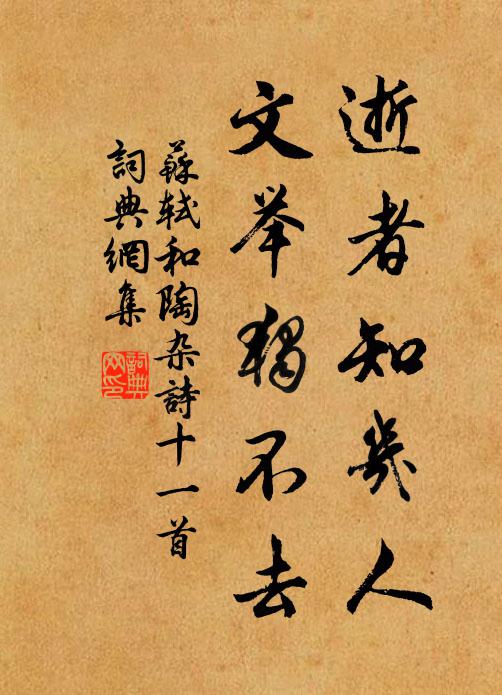 逝者知幾人
文举獨不去
蘇轼和陶杂詩十一首
詞典網集
詞典
网印